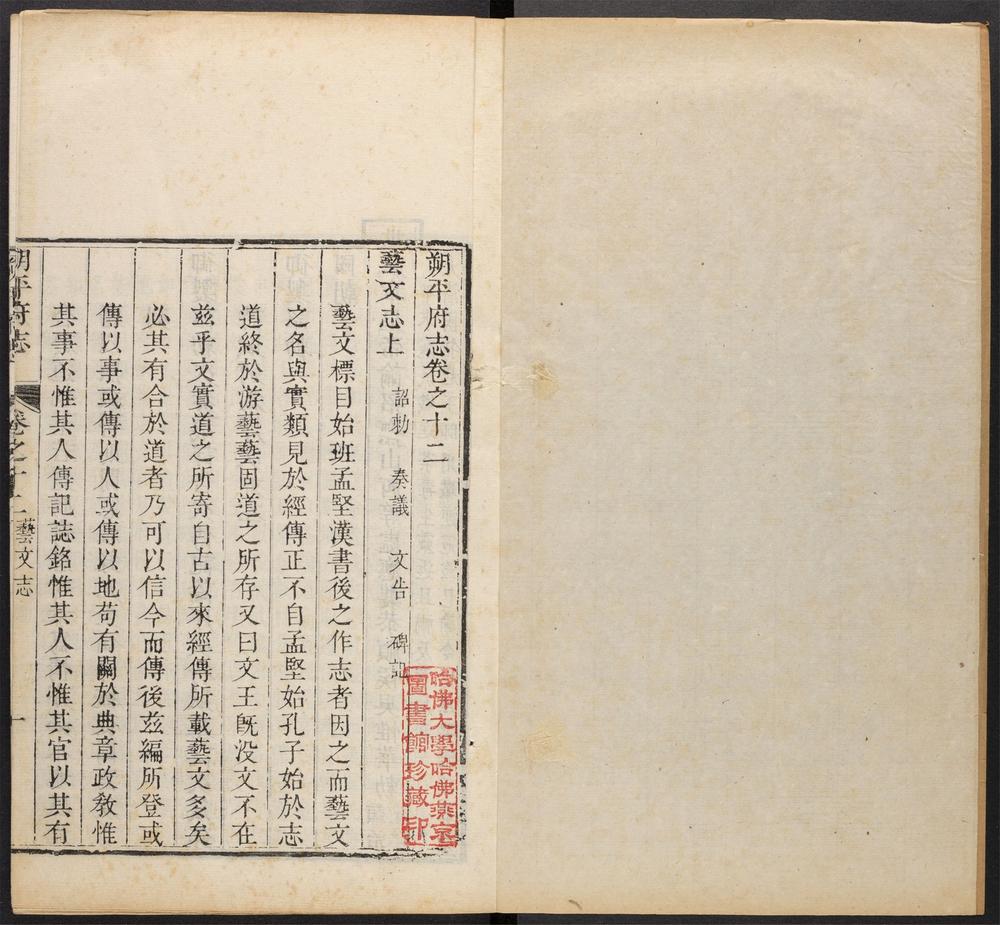 朔平府志卷之十二
藝文志上 詔勅 奏議 文告 碑記
藝文標目始班孟堅漢書後之作志者因之而藝文
之名與實類見於經傳正不自孟堅始孔子始於志
道終於游藝藝固道之所存又曰文王旣没文不在
玆乎文實道之所寄自古以來經傳所載藝文多矣
必其有合於道者乃可以信今而傳後玆編所登或
傳以事或傳以人或傳以地苟有關於典章政敎惟
其事不惟其人傳記誌銘惟其人不惟其官以其有
朔平府志 卷之十二 藝文志 一
哈佛大學哈佛燕京
圖書館珍藏印